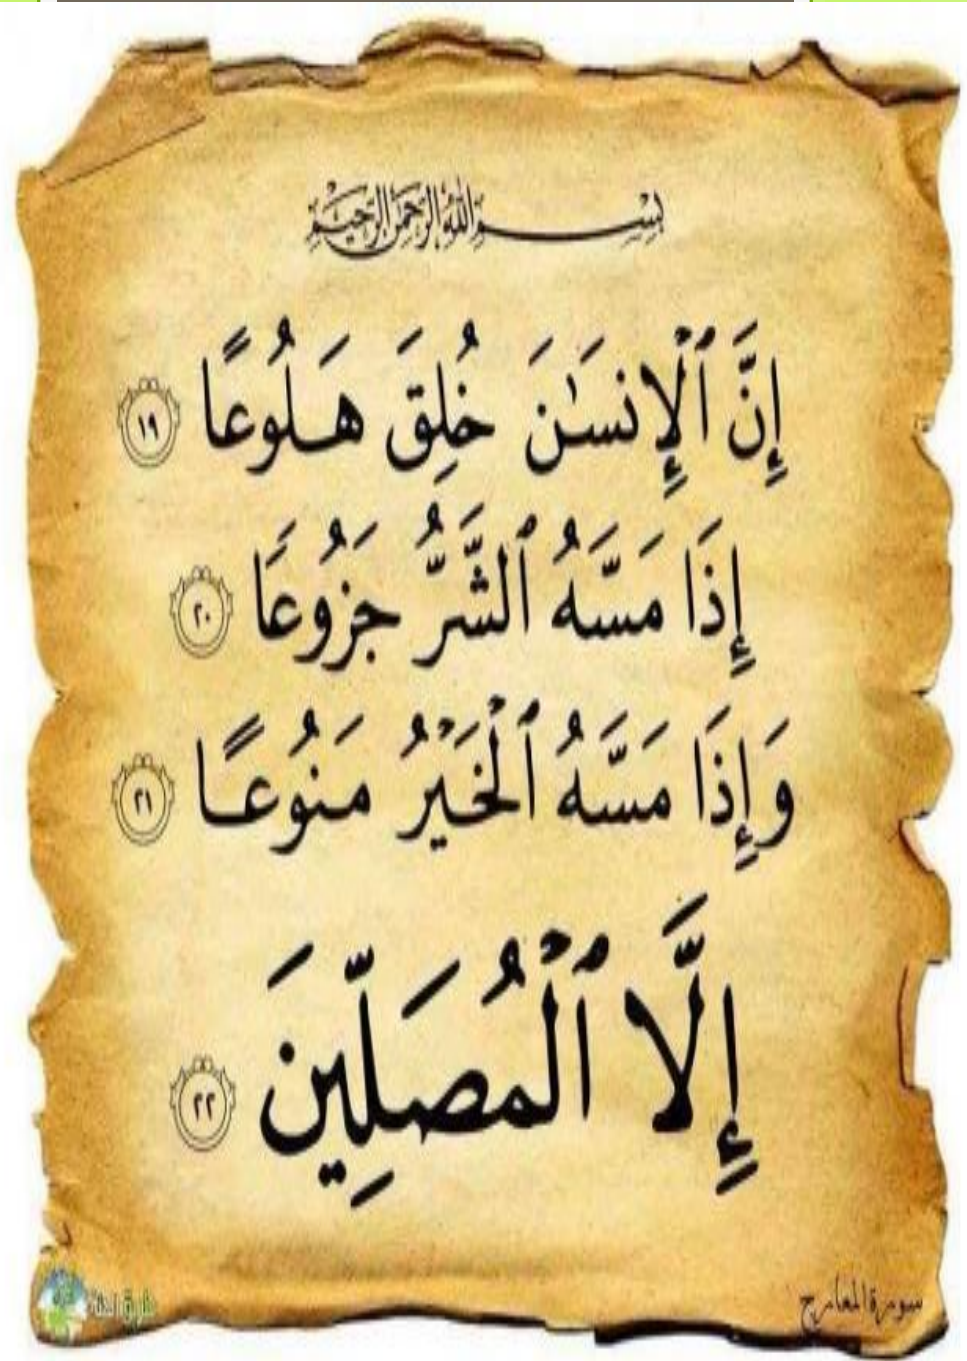 بِسْمِ اللَّهِ الرَّحْمَنِ الرَّحِيمِ
إِنَّ ٱلْإِنسَـٰنَ خُلِقَ هَـلُوعًا ١٩
إِذَا مَسَّهُ ٱلشَّرُّ جَزُوعًا ٢٠
وَإِذَا مَسَّهُ ٱلْخَيْرُ مَنُوعًا ٢١
إِلَّا ٱلْمُصَلِّينَ ٢٢
سورة المعارج